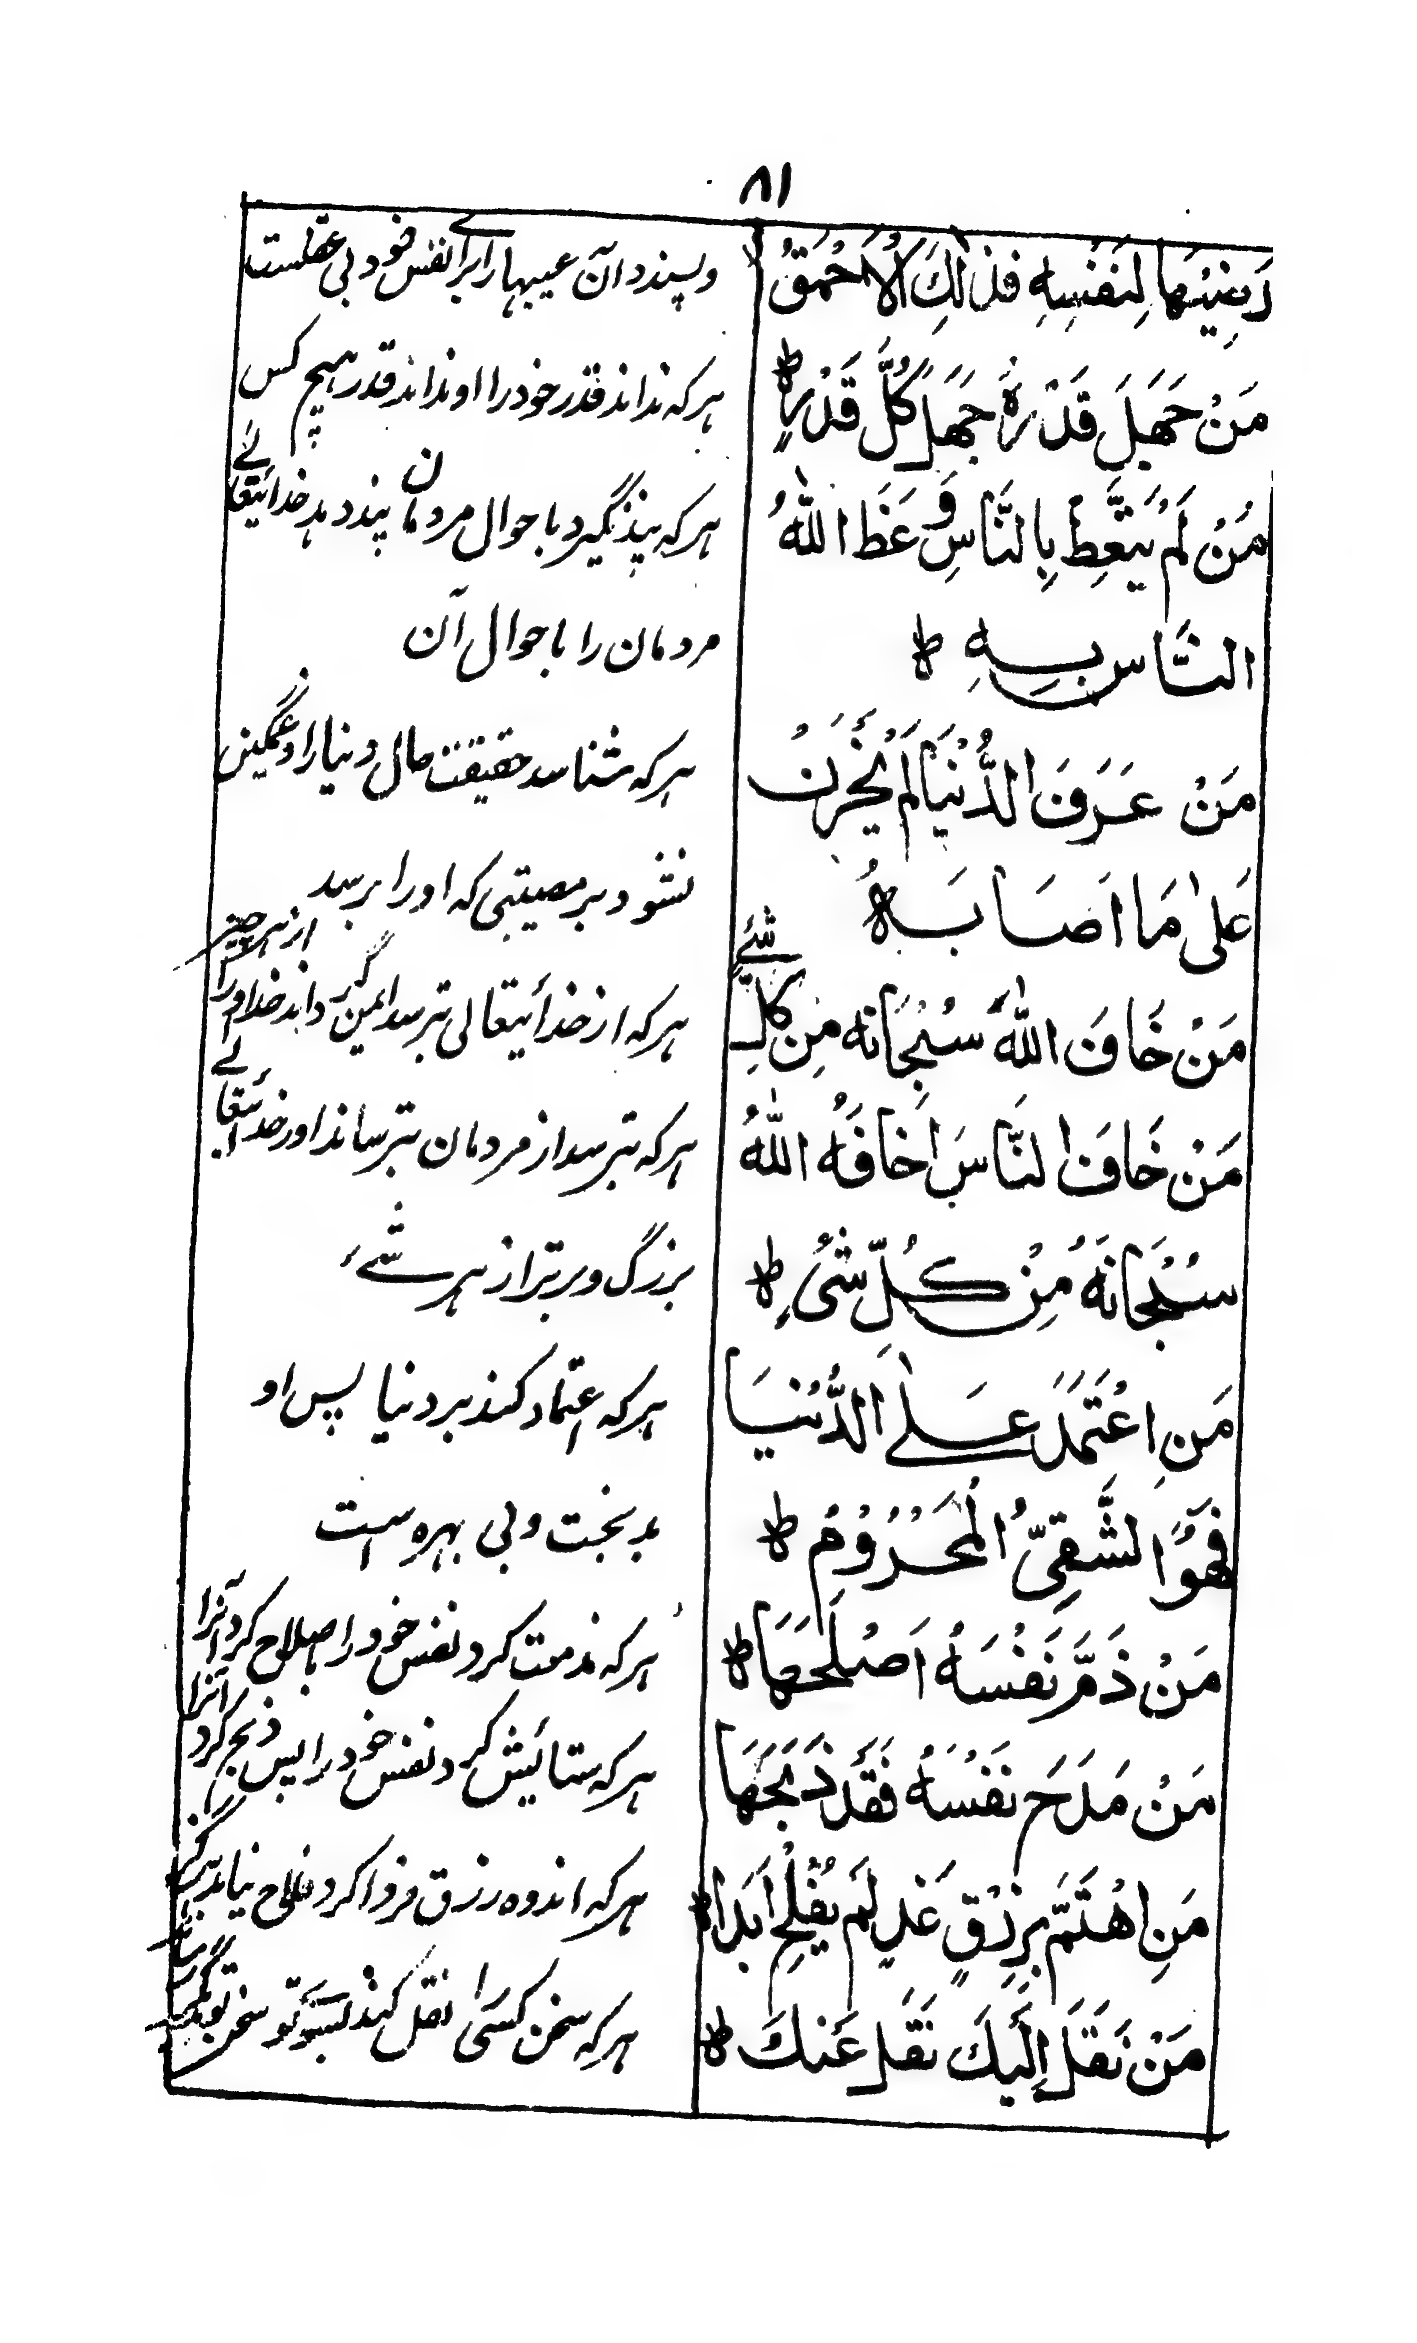 ۸۱
رَضِيَهَا لِنَفْسِهِ فَذٰلِكَ الْاَحْمَقُ
وپسندد آن عیبها را برائے نفس خود بی عقلست
مَنْ جَهِلَ قَدْرَهُ جَهِلَ كُلَّ قَدْرٍ ط
هر که نداند قدر خود را او نداند قدر هیچ کس
مَنْ لَمْ يَتَّعِظْ بِالنَّاسِ وَعَظَ اللّٰهُ
هر که پند نگیرد باحوال مردمان پند دهد خدائیتعالے
النَّاسَ بِهِ ط
مردمان را باحوال آن
مَنْ عَرَفَ الدُّنْيَا لَمْ يَحْزَنْ
هر که شناسد حقیقت حال دنیا را او غمگین
عَلٰى مَا اَصَابَهُ ط
نشود بر مصیبتی که او را برسد
مَنْ خَافَ اللّٰهَ سُبْحَانَه مِن كُلِّ شَئٍ
هر که از خدائیتعالی ترسد ایمن گرداند خدا او را از هر چیز
مَنْ خَافَ النَّاسَ اَخَافَهُ اللّٰهُ
هر که ترسد از مردمان بترساند او را خدائیتعالے
سُبْحَانَهُ مِنْ كُلِّ شَئٍ ط
بزرگ و برتر از هر شےء
مَنِ اعْتَمَدَ عَلَى الدُّنْيَا
هر که اعتماد کند بر دنیا پس او
فَهُوَ الشَّقِيُّ الْمَحْرُوْمُ ط
بدبخت و بی بهره است
مَنْ ذَمَّ نَفْسَهُ اَصْلَحَهَا ط
هر که مذمت کرد نفس خود را اصلاح کرد آنرا
مَنْ مَدَحَ نَفْسَهُ فَقَدْ ذَبَحَهَا
هر که ستائیش کرد نفس خود را پس ذبح کرد آنرا
مَنِ اهْتَمَّ بِرِزْقِ غَدٍ لَمْ يُفْلِحْ اَبَدًا ط
هر که اندوه رزق فردا کرد فلاح نیابد هرگز
مَنْ نَقَلَ اِلَيْكَ نَقَلَ عَنْكَ ط
هر که سخن کسی را نقل کند بسوئے تو سخن تو